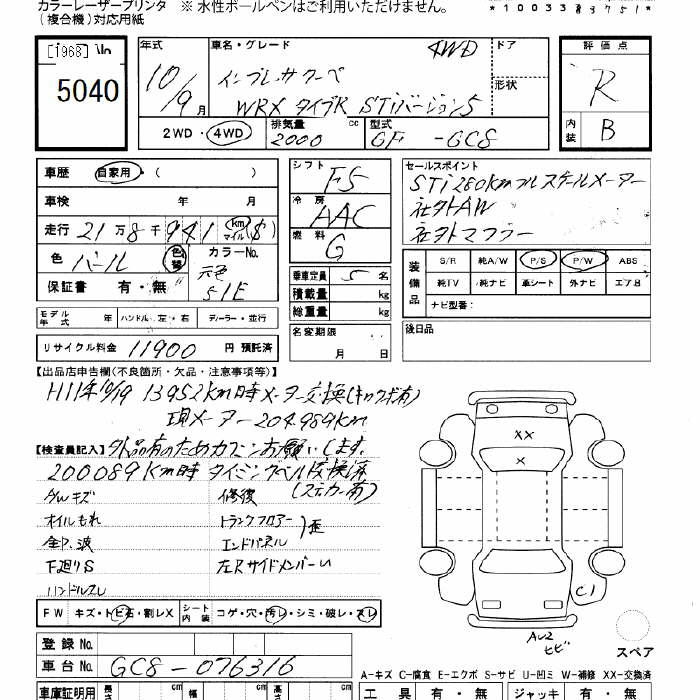 カラーレーザープリンタ ※ 水性ボールペンはご利用いただけません。
(複合機)対応用紙
[1968]
5040
年式 10/9月
車名・グレード 4WD
インプレッサクーペ
WRX タイプR STiバージョン5
ドア
形状
評価点 R
内装 B
2WD・4WD 排気量 2000 cc 型式 GF -GC8
車歴 自家用・( )
車検 年 月
走行 21万8千941 km マイル ($)
色 パール 色替 カラーNo. 元色 51E
保証書 有・無
シフト F5
冷房 AAC
燃料 G
乗車定員 5 名
積載量 kg
総重量 kg
名変期限 月 日
セールスポイント
STi 280kmフルスケールメーター
社外AW
社外マフラー
装備品 S/R 純A/W P/S P/W ABS
純TV 純ナビ 革シート 外ナビ エアB
ナビ型番:
モデル年式 年 ハンドル 左・右 ディーラー・並行
後日品
リサイクル料金 11900 円 預託済
【出品店申告欄(不良箇所・欠品・注意事項等)】
H11年10/19 13952km時メーター交換(キロク有)
現メーター 204.989km
【検査員記入】外品有のためカクニンお願いします。
200089km時 タイミングベルト交換済
(ステッカー有)
A/Wキズ 修復
オイルもれ トランクフロアー
エンドパネル 歪
下廻りS 左Rサイドメンバー
ハンドルスレ
XX
X
C1
AU2
ヒビ
スペア
FW キズ・トビ石・割レX シート内装 コゲ・穴・汚レ・シミ・破レ・スレ
登録 No.
車台 No. GC8-076316
A-キズ C-腐食 E-エクボ S-サビ U-凹ミ W-補修 XX-交換済
車庫証明用 長さ cm 幅 cm 高さ cm
工具 有・無 ジャッキ 有・無